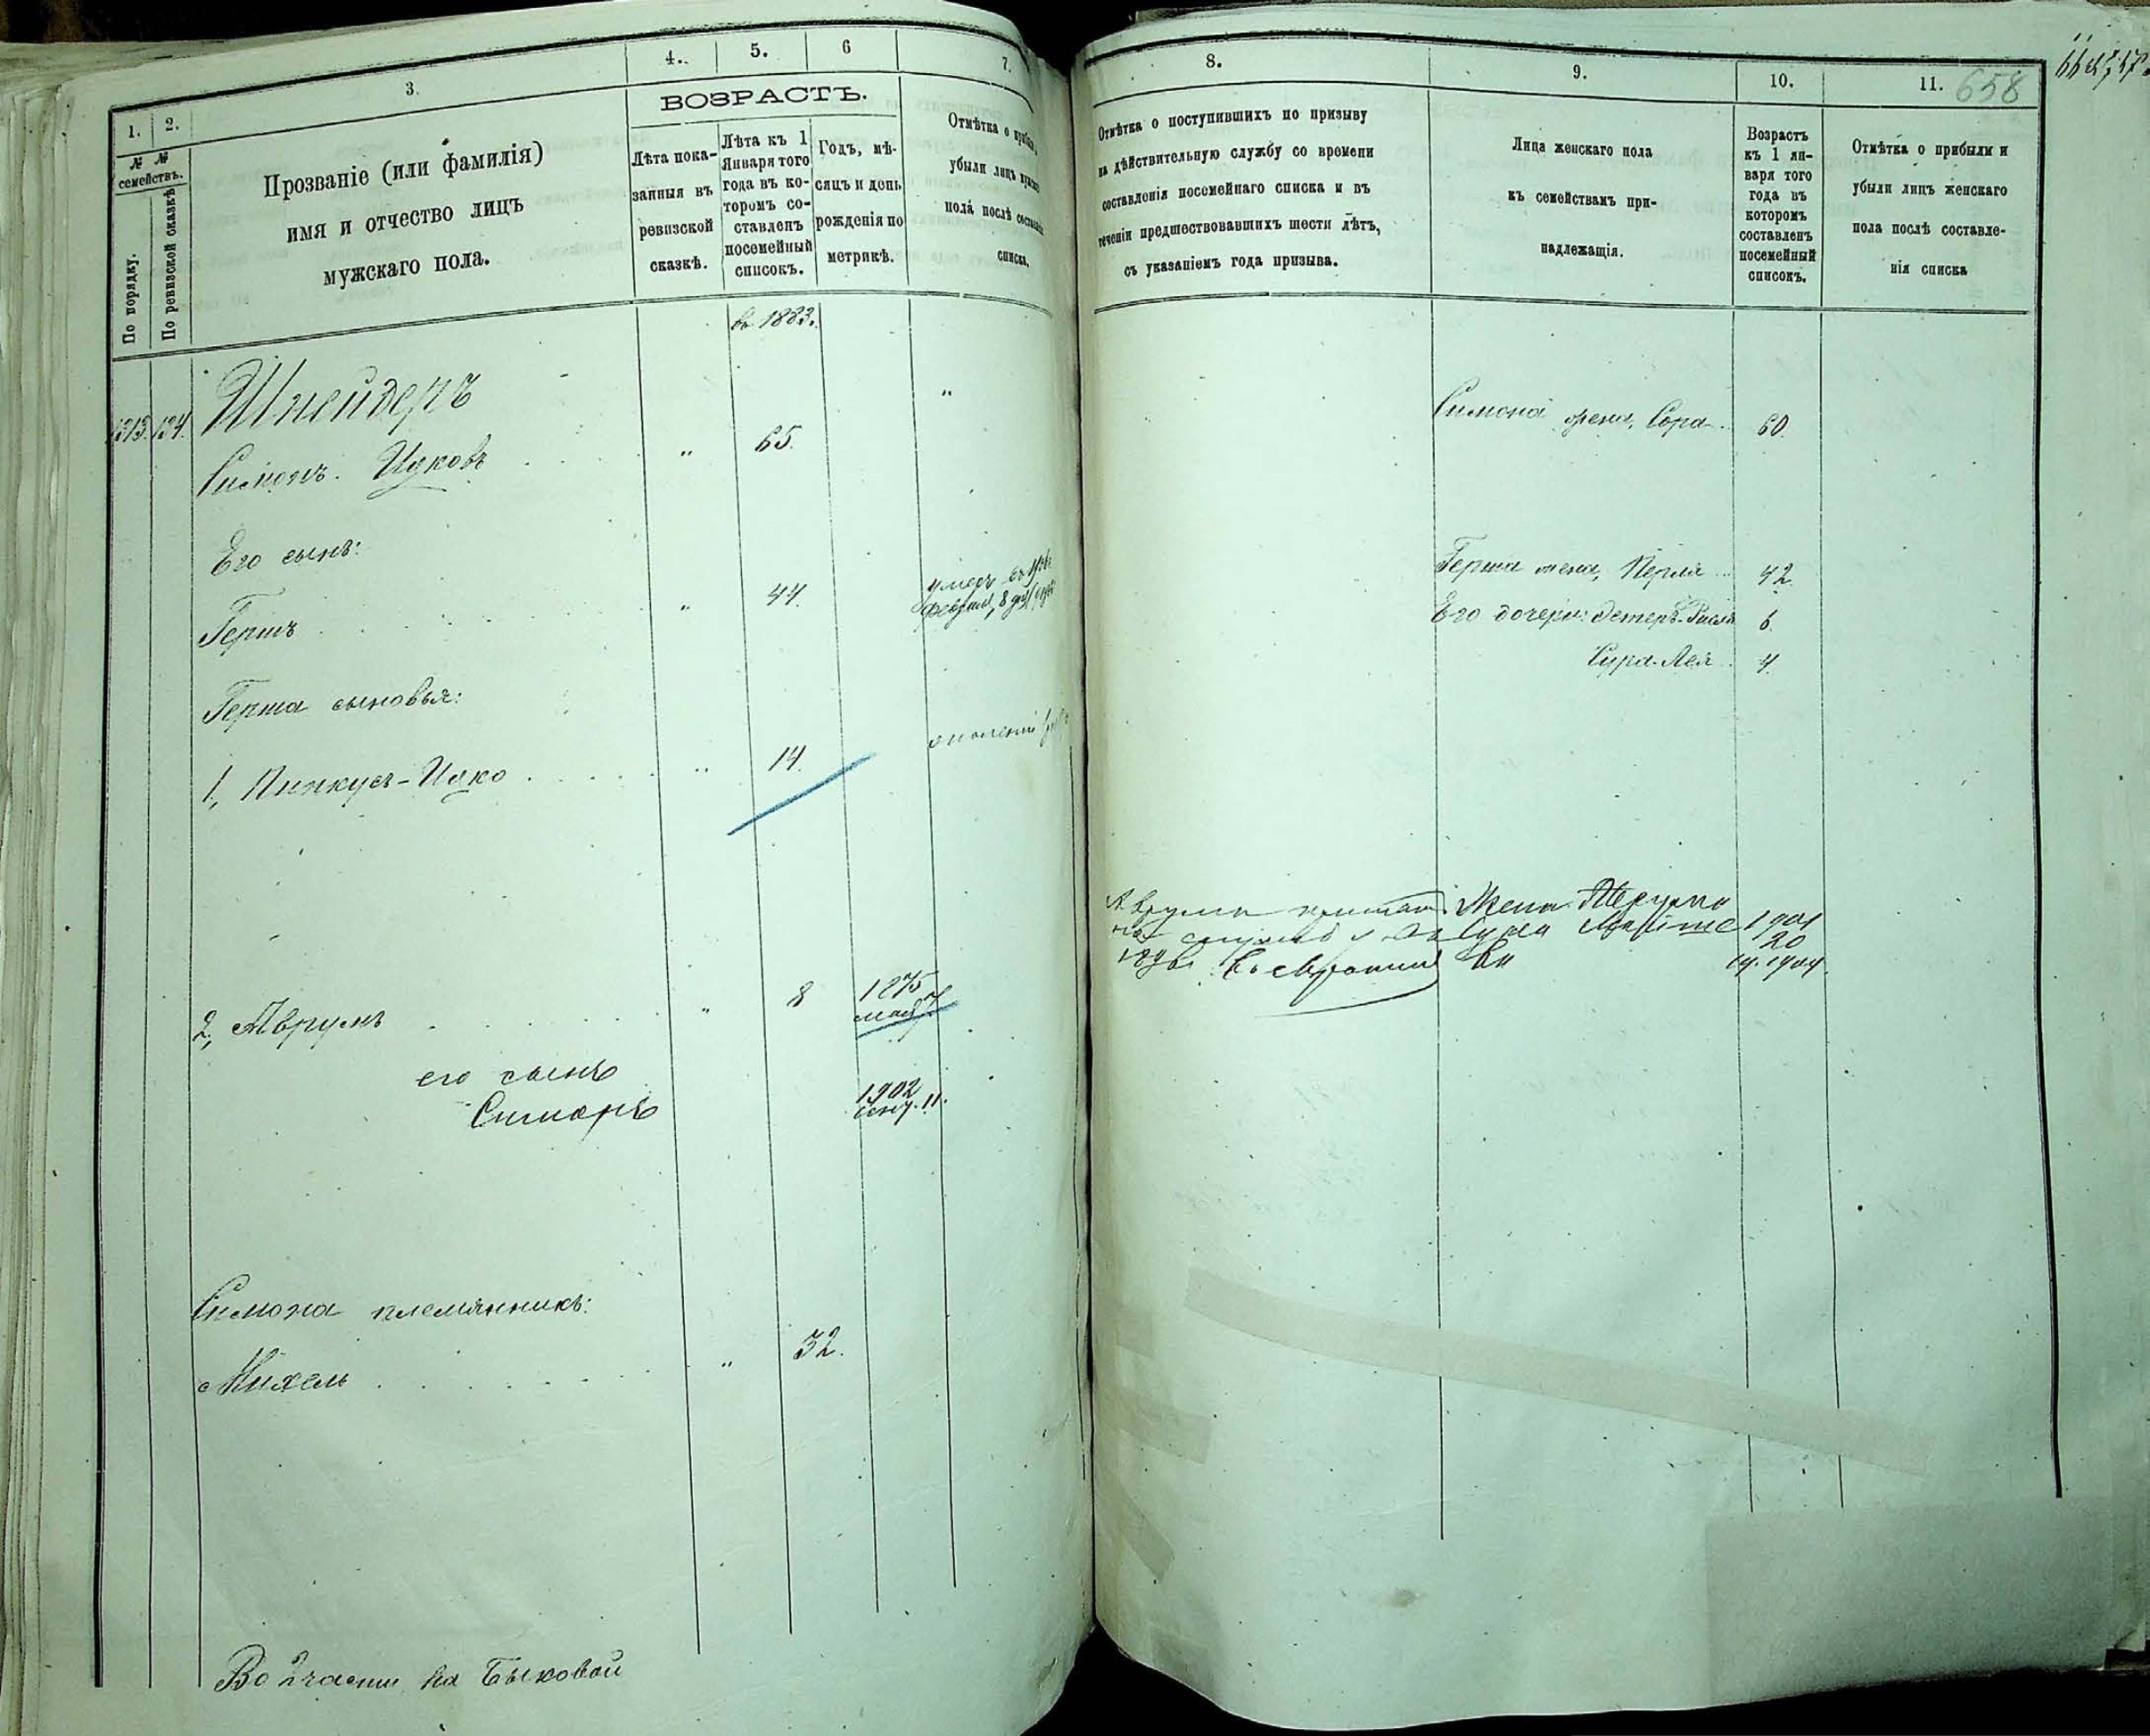 1. 2. 3. 4. 5. 6 7.
№ №
семействъ.
По порядку.
По ревизской сказкѣ
Прозваніе (или фамилія)
имя и отчество лицъ
мужскаго пола.
ВОЗРАСТЪ.
Лѣта пока-
занныя въ
ревизской
сказкѣ.
Лѣта къ 1
Января того
года въ ко-
торомъ со-
ставленъ
посемейный
списокъ.
Годъ, мѣ-
сяцъ и день
рожденія по
метрикѣ.
Отмѣтка о
убыли лицъ
пола послѣ
списка.
въ 1883.
1313. 134. Шнейдеръ "
Симонъ Ицковъ " 65.
Его сынъ:
Гершъ " 44.
Герша сыновья:
1, Пинкусъ-Ицко " 14.
2, Аврумъ " 8 1875
его сынъ
Симонъ
1902
сент. 11.
Симона племянникъ:
Михель " 32.
Во 2 части на Быковой
8. 9. 10. 11. 658
Отмѣтка о поступившихъ по призыву
на дѣйствительную службу со времени
составленія посемейнаго списка и въ
теченіи предшествовавшихъ шести лѣтъ,
съ указаніемъ года призыва.
Лица женскаго пола
къ семействамъ при-
надлежащія.
Возрастъ
къ 1 ян-
варя того
года въ
которомъ
составленъ
посемейный
списокъ.
Отмѣтка о прибыли и
убыли лицъ женскаго
пола послѣ составле-
нія списка
Симона жена, Сора 60.
Герша жена, Перля 42.
Его дочери: Эстеръ- 6.
Сура-Лея 4.
Жена Аврума
1901
20
1904